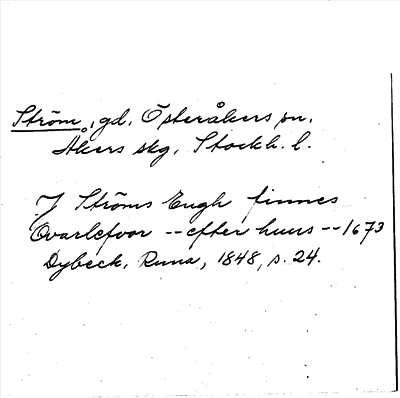 Ström, gd, Österåkers sn,
Åkers skg, Stockh. l.
J Ströms Engh finnes
Qvarlefvor -- efter huus -- 1673
Dybeck, Runa, 1848, s. 24.